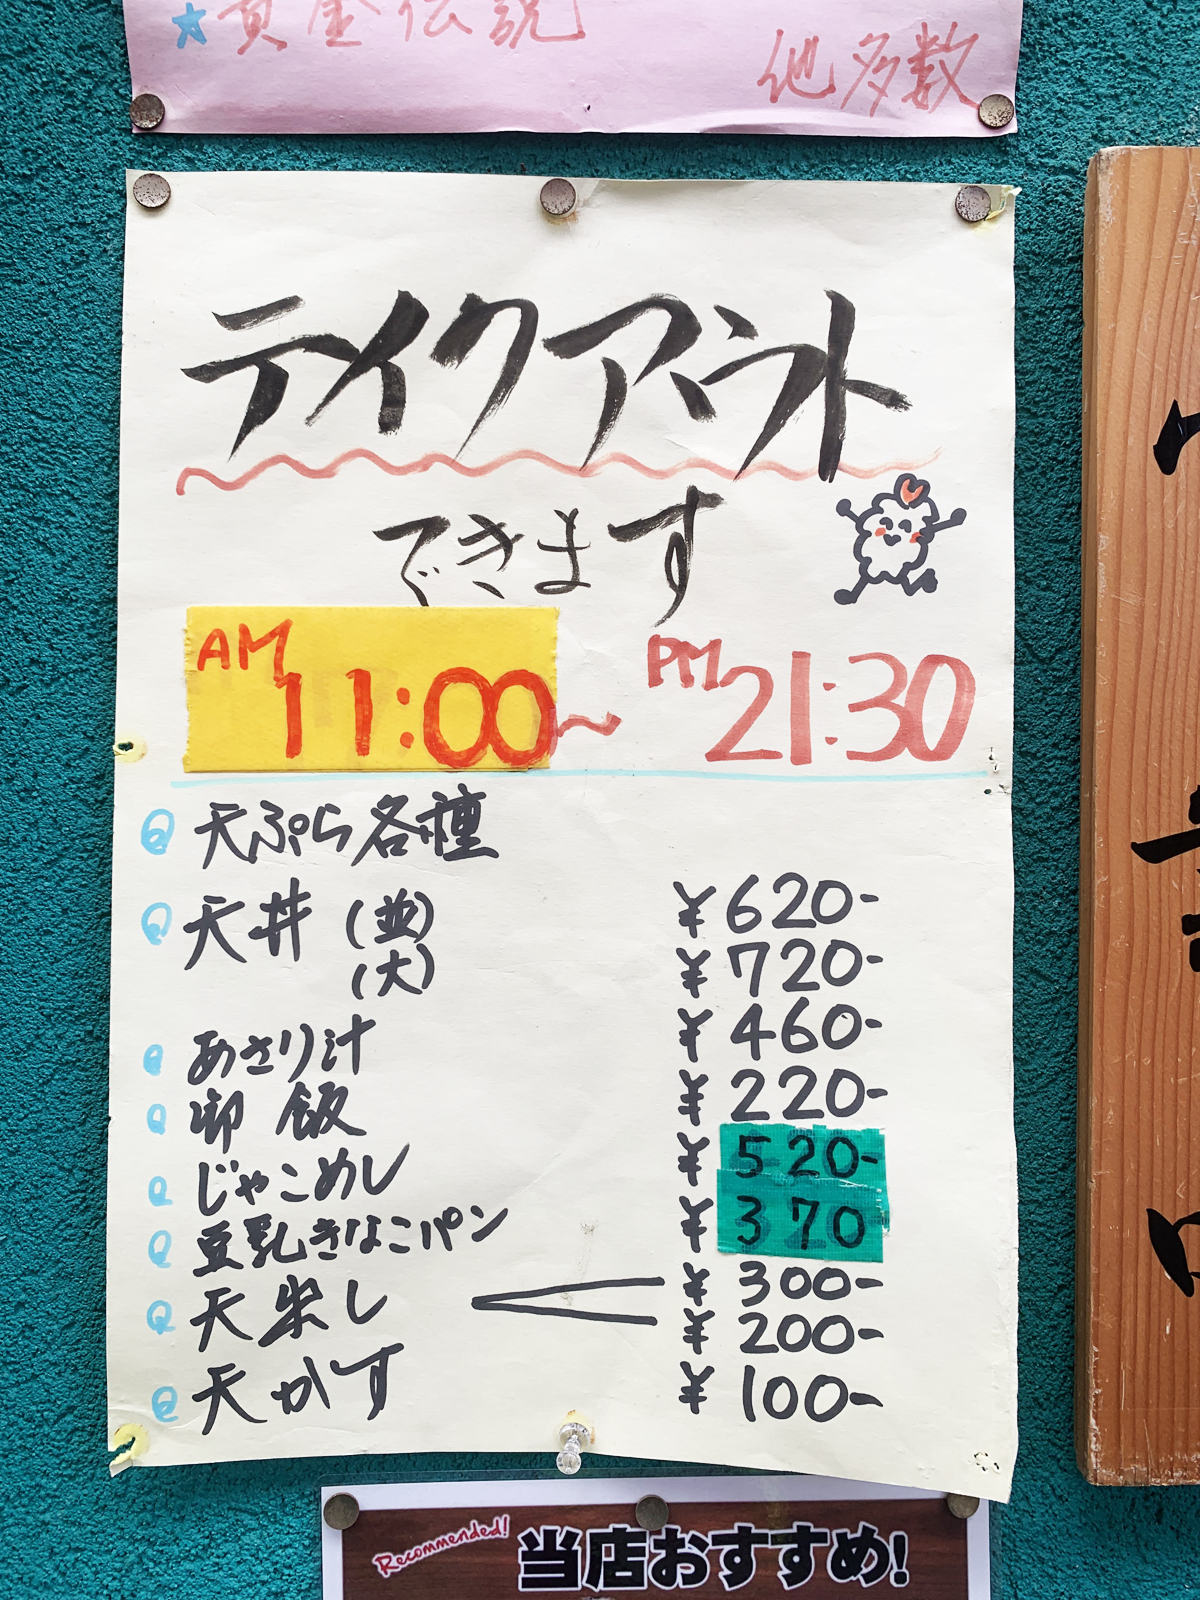 ★黄金伝説
他多数
テイクアウト
できます
AM 11:00～ PM 21:30
天ぷら各種
天丼 (並) ¥620-
(大) ¥720-
あさり汁 ¥460-
卵飯 ¥220-
じゃこめし ¥520-
豆乳きなこパン ¥370
天出し ¥300-
¥200-
天かす ¥100-
Recommended!
当店おすすめ!